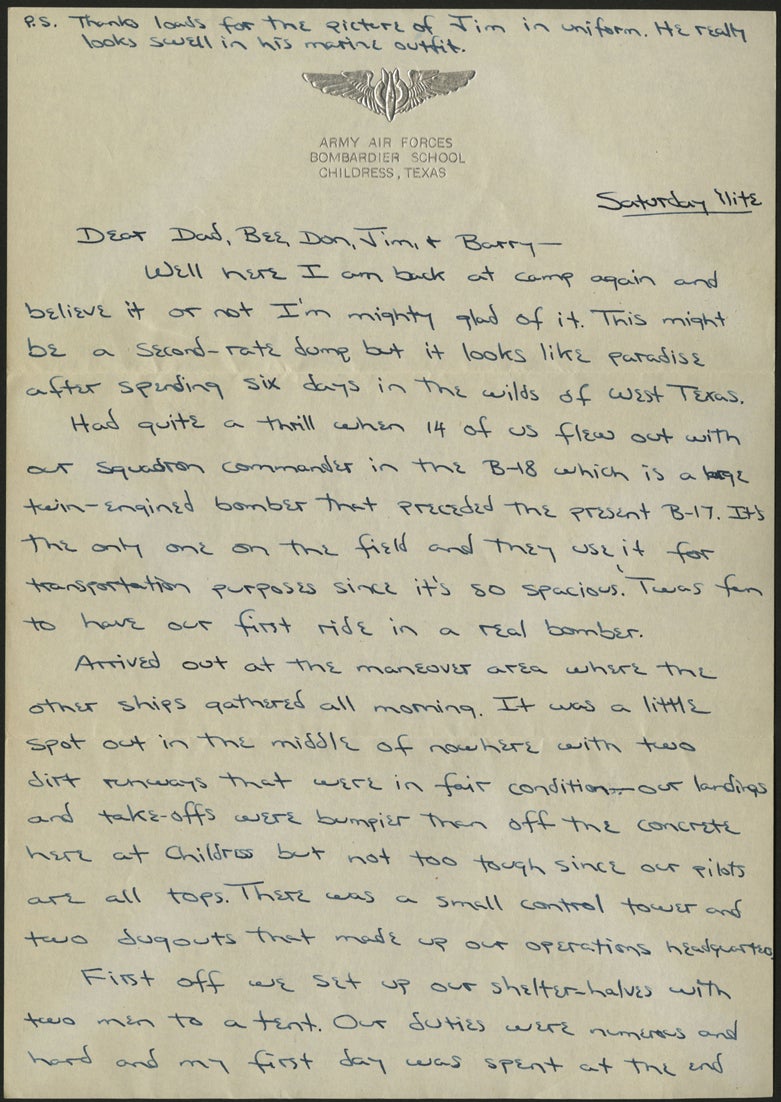 P.S. Thanks loads for the picture of Jim in uniform. He really
looks swell in his marine outfit.
ARMY AIR FORCES
BOMBARDIER SCHOOL
CHILDRESS, TEXAS
Saturday Nite
Dear Dad, Bee, Don, Jim, + Barry—
Well here I am back at camp again and
believe it or not I'm mighty glad of it. This might
be a second-rate dump but it looks like paradise
after spending six days in the wilds of West Texas.
Had quite a thrill when 14 of us flew out with
our squadron commander in the B-18 which is a large
twin-engined bomber that preceded the present B-17. It's
the only one on the field and they use it for
transportation purposes since it's so spacious. 'Twas fun
to have our first ride in a real bomber.
Arrived out at the maneuver area where the
other ships gathered all morning. It was a little
spot out in the middle of nowhere with two
dirt runways that were in fair condition—our landings
and take-offs were bumpier than off the concrete
here at Childress but not too tough since our pilots
are all tops. There was a small control tower and
two dugouts that made up our operations headquarters.
First off we set up our shelter-halves with
two men to a tent. Our duties were numerous and
hard and my first day was spent at the end